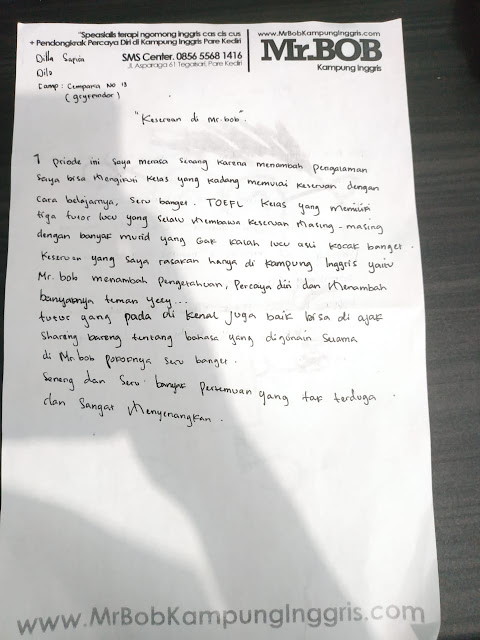 "Speasialis terapi ngomong Inggris cas cis cus
+ Pendongkrak Percaya Diri di Kampung Inggris Pare Kediri
SMS Center. 0856 5568 1416
Jl. Asparaga 61 Tegalsari, Pare Kediri
www.MrBobKampungInggris.com
Mr.BOB
Kampung Inggris
Dilla
Dila
Camp : Cempaka No 13
"Keseruan di Mr.bob".
1 priode ini saya merasa senang karena menambah pengalaman
saya bisa mengikuti kelas yang kadang memulai keseruan dengan
cara belajarnya, seru banget. TOEFL kelas yang memiliki
tiga tutor lucu yang selalu membawa keseruan masing-masing
dengan banyak murid yang gak kalah lucu asli kocak banget.
Keseruan yang saya rasakan hanya di kampung Inggris yaitu
Mr. bob menambah pengetahuan, percaya diri dan menambah
banyaknya teman yeey...
tutor yang pada di kenal juga baik bisa di ajak
sharing bareng tentang bahasa yang digunain selama
di Mr.bob pokoknya seru banget.
Seneng dan seru banyak pertemuan yang tak terduga.
dan sangat menyenangkan.
www.MrBobKampungInggris.com